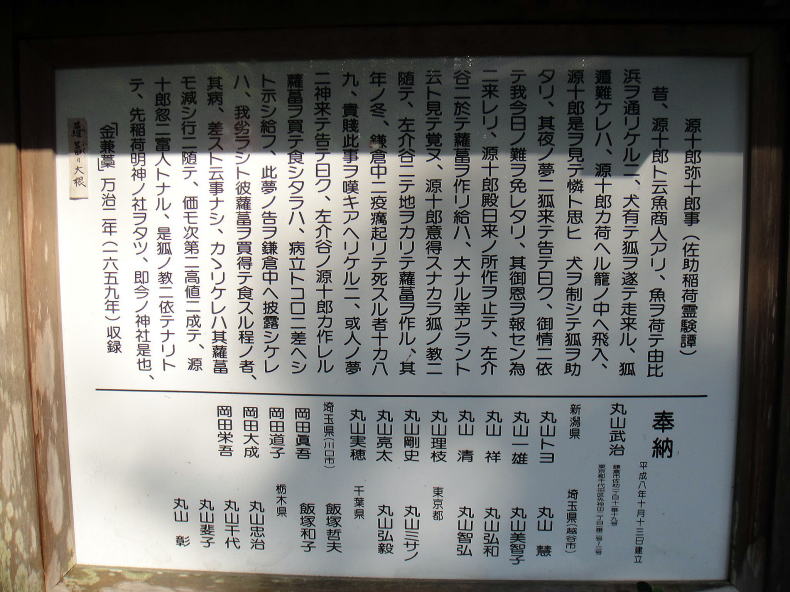 源十郎弥十郎事(佐助稲荷霊験譚)
昔、源十郎ト云魚商人アリ、魚ヲ荷テ由比
浜ヲ通リケルニ、犬有テ狐ヲ逐テ走来ル、狐
遁難ケレハ、源十郎カ荷ヘル籠ノ中ヘ飛入、
源十郎是ヲ見テ憐ト思ヒ 犬ヲ制シテ狐ヲ助
タリ、其夜ノ夢ニ狐来テ告テ曰ク、御情ニ依
テ我今日ノ難ヲ免レタリ、其御恩ヲ報セン為
ニ来レリ、源十郎殿日来ノ所作ヲ止テ、左介
谷ニ於テ蘿蔔ヲ作リ給ハ、大ナル幸アラント
云ト見テ覚ヌ、源十郎意得スナカラ狐ノ教ニ
随テ、左介谷ニテ地ヲカリテ蘿蔔ヲ作ル、其
年ノ冬、鎌倉中ニ疫癘起リテ死スル者十カ八
九、貴賤此事ヲ嘆キアヘリケルニ、或人ノ夢
ニ神来テ告テ曰ク、左介谷ノ源十郎カ作レル
蘿蔔ヲ買テ食シタラハ、病立トコロニ差ヘシ
トホシ給フ、此夢ノ告ヲ鎌倉中ヘ披露シケレ
ハ、我劣ラシト彼蘿蔔ヲ買得テ食スル程ノ者、
其病、差スト云事ナシ、カゝリケレハ其蘿蔔
モ減シ行ニ随テ、価モ次第ニ高値ニ成テ、源
十郎忽ニ富人トナル、是狐ノ教ニ依テナリト
テ、先稲荷明神ノ社ヲタツ、即今ノ神社是也、
「金兼藁」万治二年(一六五九年)収録
蘿蔔=大根
奉納
平成八年十月十三日建立
丸山武治
新潟県
丸山トヨ
丸山一雄
丸山 祥
丸山 清
丸山理枝
丸山剛史
丸山亮太
丸山実穂
埼玉県(川口市)
岡田眞吾
岡田道子
岡田大成
岡田栄吾
埼玉県(越谷市)
丸山 慧
丸山美智子
丸山弘和
丸山智弘
東京都
丸山ミサノ
丸山弘毅
千葉県
飯塚哲夫
飯塚和子
栃木県
丸山忠治
丸山千代
丸山斐子
丸山 彰